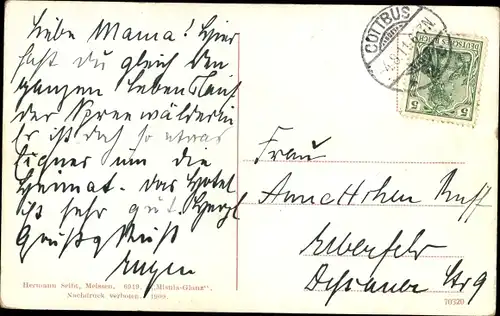 Liebe Mama! Hier
hast du gleich den
ganzen Lebenslauf
der Spreewälderin
Es ist doch so etwas
Eignes um die
Heimat. Das Hotel
ist sehr gut. Herzl
Gruß Kuß
Eugen
Hermann Seibt, Meissen. 6919. „Mistula-Glanz“.
Nachdruck verboten. 1909.
COTTBUS
DEUTSCHES REICH
5 5
Frau
Anne
Elberfeld
Dessauer Str 9
70320